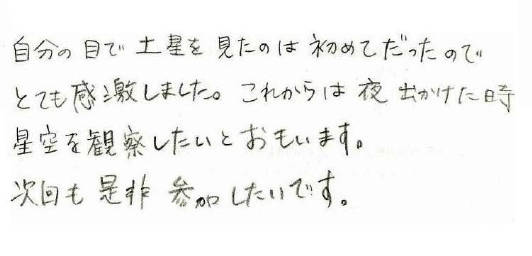 自分の目で土星を見たのは初めてだったので
とても感激しました。これからは夜出かけた時
星空を観察したいとおもいます。
次回も是非参加したいです。